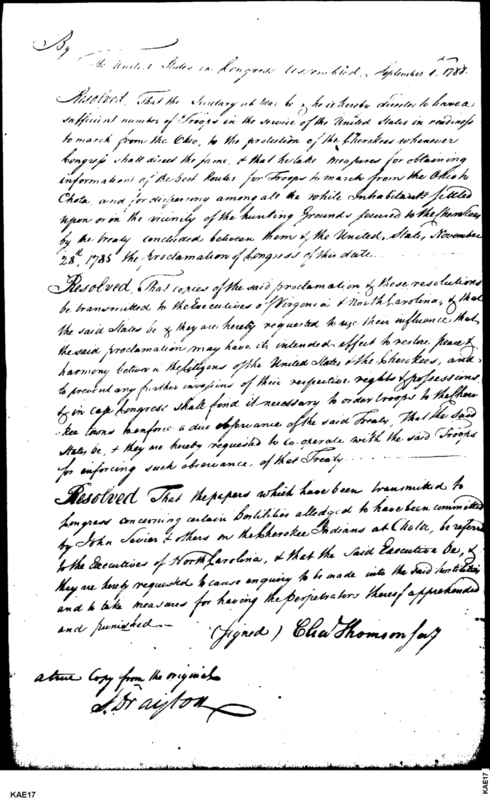 By
The United States in Congress Assembled, September 1st 1788.
Resolved, That the Secretary at War be & he is hereby directed to have a
sufficient number of Troops in the service of the United States in readiness
to march from the Ohio, to the protection of the Cherokees whenever
Congress shall direct the same, & that he take measures for obtaining
information of the best Routes for Troops to march from the Ohio to
Chota, and for dispersing among all the white inhabitants settled
upon or in the vicinity of the hunting Grounds secured to the
by the treaty concluded between them & the United, States, November
28th 1785 the proclamation of Congress of this date
Resolved, That copies of the said proclamation & these resolutions
be transmitted to the Executives of Virginia & North Carolina, & that
the said States be & they are hereby requested to use their influence that
the said proclamation may have its intended effect to restore peace &
harmony between the Citizens of the United States & the Cherokees, and
to prevent any further invasions of their respective rights & possessions
& in case Congress shall find it necessary to order troops to the Chero
kee towns to enforce a due observance of the said Treaty, That the said
States be, & they are hereby requested to Co-operate with the said Troops
for enforcing such observance of that Treaty
Resolved That the papers which have been transmitted to
Congress concerning certain hostilities alledged to have been committed
by John Sevier & others on the Cherokee Indians at Chota, be referred
to the Executives of North Carolina, & that the said Executive be, &
they are hereby requested to cause enquiry to be made into the said hostilities
and to take measures for having the perpetrators thereof apprehended
and punished
(signed) Chas Thomson Secy
a true Copy from the original
S. Drayton
KAE17
KAE17